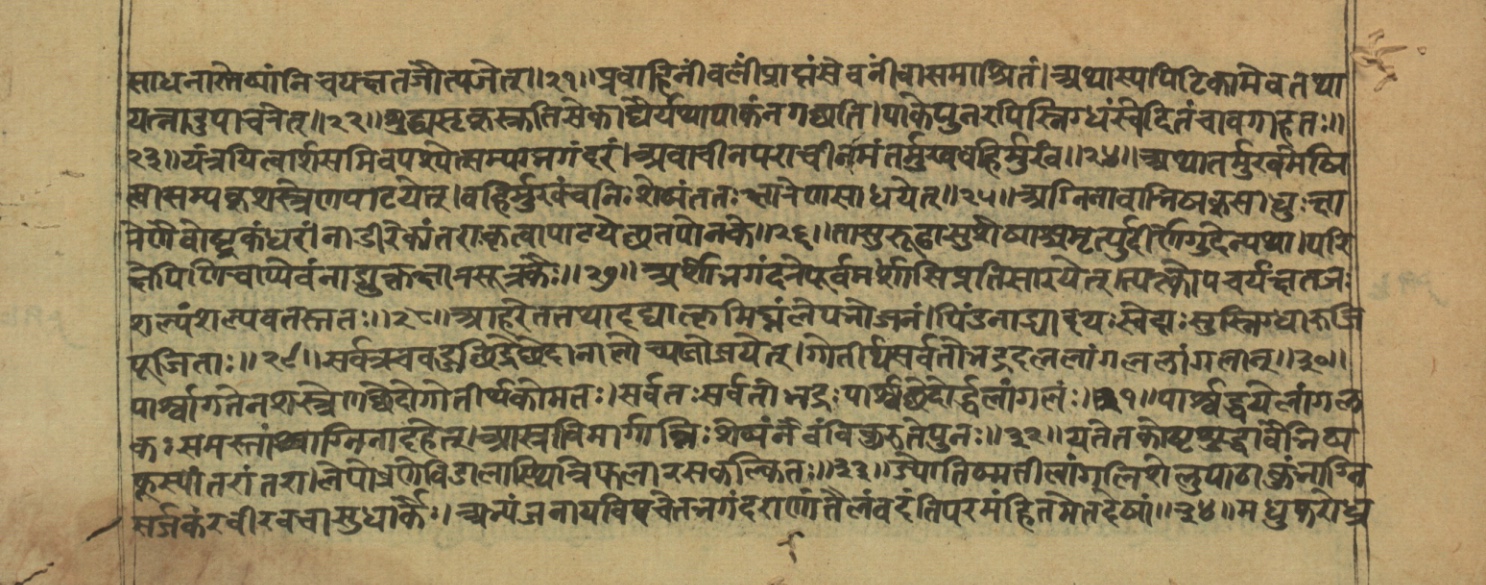 साधनास्तेषां निचयस्तत्रतोत्यजेत्॥२१॥प्रवाहिनीं वलीं प्राप्तं सेवनीं वा समाश्रितं।अथास्यपिटिकामेव तथा
यत्नादुपाचरेत्॥२२॥शुद्ध्यसृक्स्रुतिसेकाद्यैर्यथापाकं न गछति।पाके पुनरपि स्निग्धं स्वेदितं चावगाहतः॥
२३॥यंत्रयित्वार्शसमिवपश्येत्सम्यग्भगंदरं।अवाचीनं पराचीनमंतर्मुखबहिर्मुखं॥२४॥अथातर्मुखमेषि
त्वासम्यक् शस्त्रेणपाटयेत्।बहिर्मुखंचनिःशेषंततःक्षारेणसाधयेत्॥२५॥अग्निनावाभिषक्साधुःक्षा
रेणैवोष्ट्रकंधरं।नाडीरेकांतराकृत्वापाटयेछतपोनकं॥२६॥तासुरूढासुशेषाश्चमृत्युर्दीर्णेगुदेन्यथा।परि
क्षेपिणिचाप्येवंनाड्युक्तक्षारसूत्रकैः॥२७॥अर्शोभगंदरेपूर्वमर्शांसिप्रतिसारयेत्।त्यक्त्वोपचर्यःक्षतजः
शल्यंशल्यवतस्ततः॥२८॥आहरेततथादद्यात्कृमिघ्नंलेपभोजनं।पिंडनाड्यादयःस्वेदाःसुस्निग्धारुजि
पूजिताः॥२९॥सर्वत्रचबहुछिद्रेछेदानालोच्ययोजयेत्।गोतीर्थसर्वतोभद्रदललांगललांगलान्॥३०॥
पार्श्वंगतेनशस्त्रेणछेदोगोतीर्थकोमतः।सर्वतःसर्वतोभद्रःपार्श्वछेदोर्द्धलांगलं॥३१॥पार्श्वद्वयेलांगल
कःसमस्तांश्चाग्निनादहेत्।आस्रावमार्गान्निःशेषंनैवंविकुरुतेपुनः॥३२॥यतेतकोष्टशुद्धौचभिष
क्तस्यांतरांतरा।लेपोव्रणेविडालास्थित्रिफलारसकल्कितः॥३३॥ज्योतिष्मतीलांगुलिशेलुपाठाकुंभाग्नि
सर्जकरवीरवचासुधार्कैः।अभ्यंजनायविपचेतभगंदराणांतैलंवदंतिपरमंहितमेतदेषां॥३४॥मधुकरोध्र